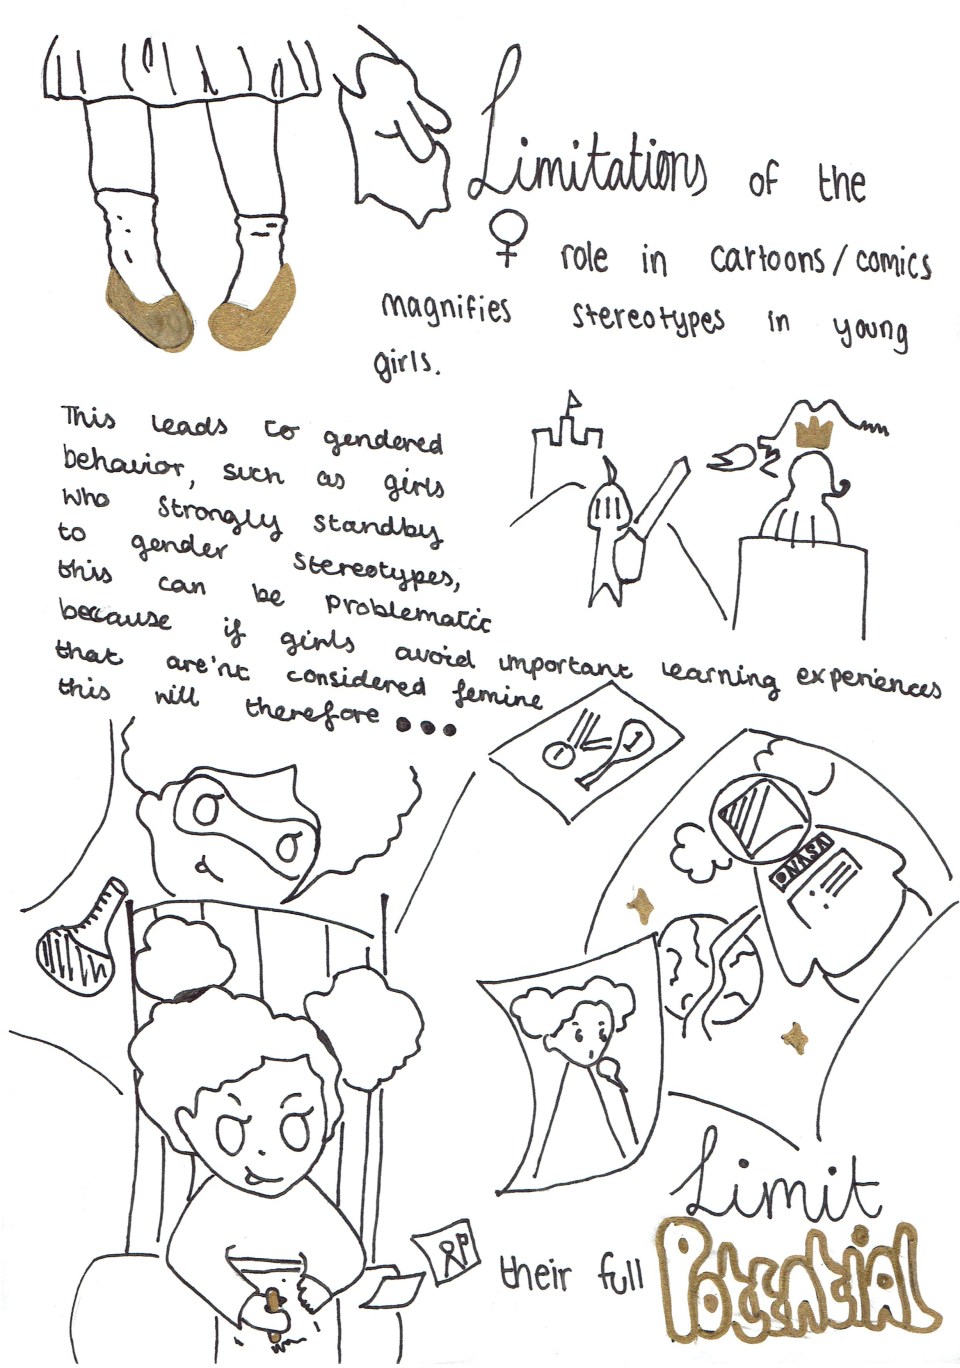 Limitations of the
♀ role in cartoons/comics
magnifies stereotypes in young
girls.
This leads to gendered
behavior, such as girls
who strongly standby
to gender stereotypes,
this can be problematic
because if girls avoid important learning experiences
that are'nt considered femine
this will therefore ...
1 1
NASA
Limit
their full Potential